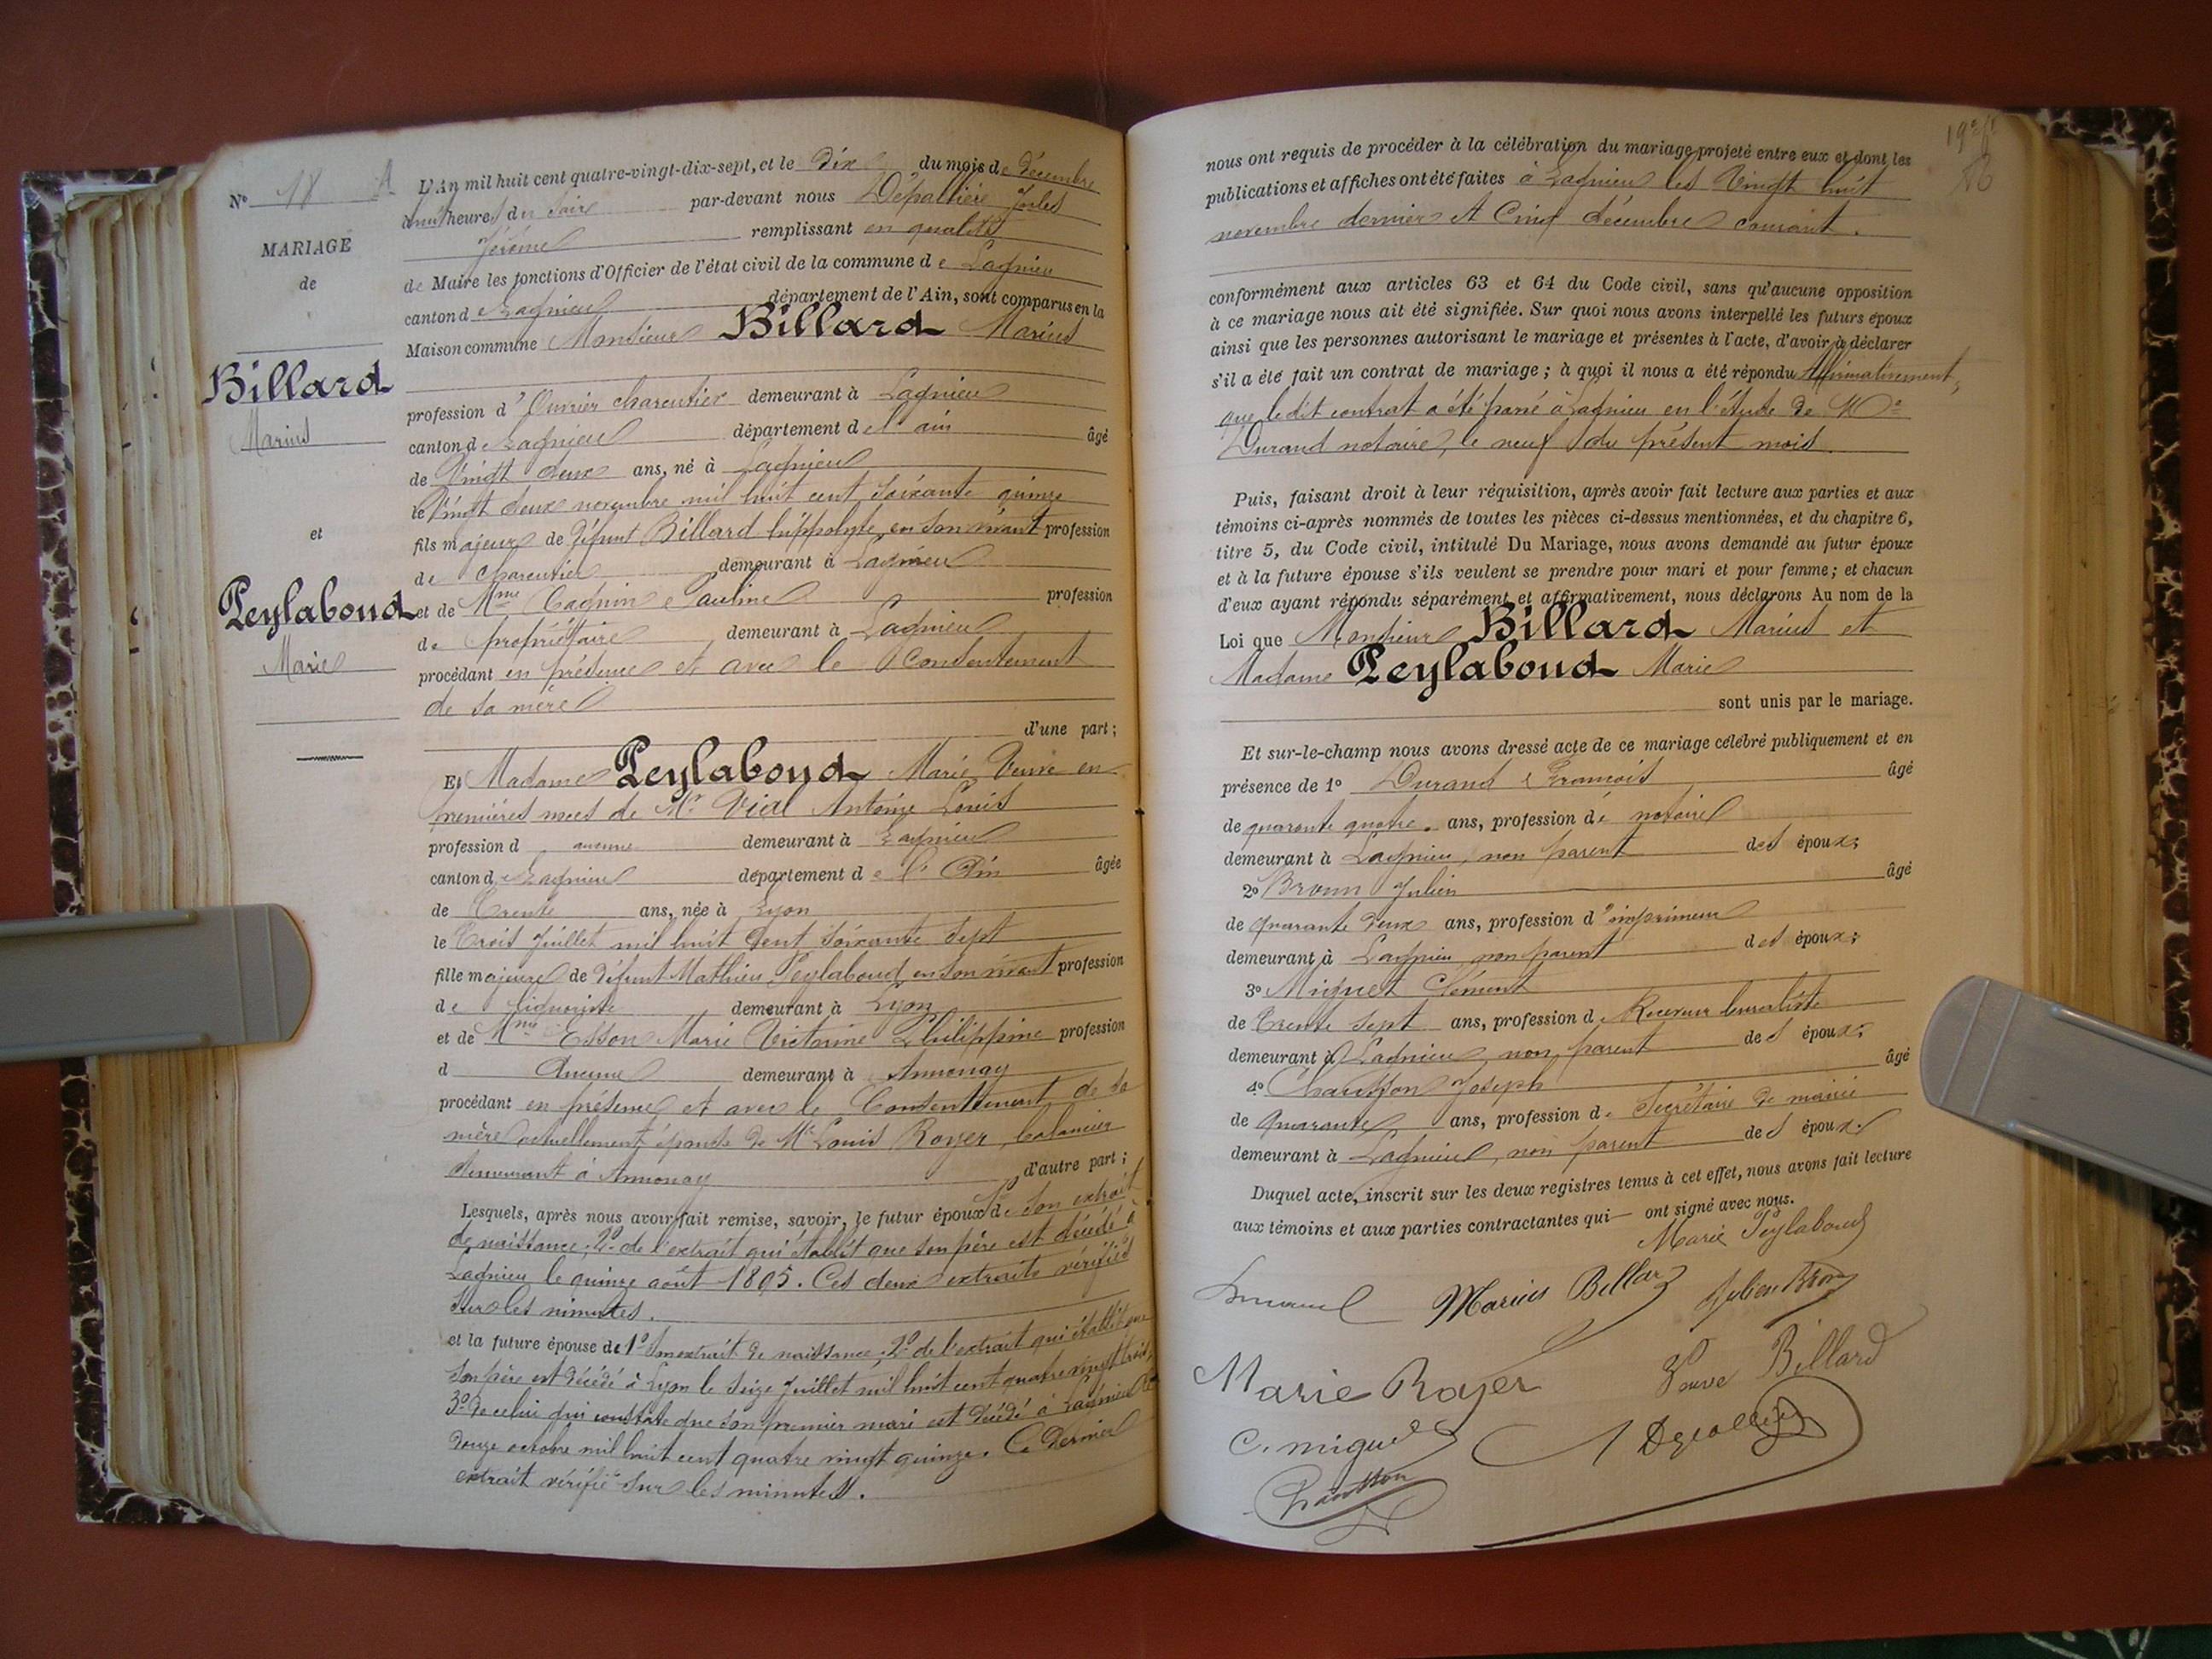 N° 18 A
MARIAGE
de
Billard
Marius
et
Peylaboud
Marie
L'An mil huit cent quatre-vingt-dix-sept, et le dix du mois de décembre
à huit heures du soir par-devant nous Dépallière Jules
Jérémie remplissant en qualité
de Maire les fonctions d'Officier de l'état civil de la commune de Lagnieu
canton de Lagnieu département de l'Ain, sont comparus en la
Maison commune Monsieur Billard Marius
profession d'Ouvrier charcutier demeurant à Lagnieu
canton de Lagnieu département de l'ain âgé
de Vingt deux ans, né à Lagnieu
le Vingt deux novembre mil huit cent soixante quinze
fils majeur de défunt Billard hippolyte, en son vivant profession
de charcutier demeurant à Lagnieu
et de Mme Cagnin Pauline profession
de propriétaire demeurant à Lagnieu
procédant en présence et avec le consentement
de sa mère
d'une part;
Et Madame Peylaboud Marie, Veuve en
premières noces de Mr Vial Antoine Louis
profession d aucune demeurant à Lagnieu
canton de Lagnieu département de l'Ain âgée
de Trente ans, née à Lyon
le Trois Juillet mil huit cent soixante sept
fille majeure de défunt Mathieu Peylaboud, en son vivant profession
de liquoriste demeurant à Lyon
et de Mme Esson Marie Victorine Philippine profession
d Aucune demeurant à Annonay
procédant en présence et avec le Consentement de sa
mère actuellement épouse de Mr Louis Royer, balancier
demeurant à Annonay d'autre part;
Lesquels, après nous avoir fait remise, savoir, le futur époux 1° de son extrait
de naissance; 2° de l'extrait qui établit que son père est décédé à
Lagnieu le quinze août 1895. Ces deux extraits vérifiés
sur les minutes.
et la future épouse de 1° son extrait de naissance; 2° de l'extrait qui établit que
son père est décédé à Lyon le seize Juillet mil huit cent quatre vingt trois;
3° de celui qui constate que son premier mari est décédé à Lagnieu le
douze octobre mil huit cent quatre vingt quinze. Ce dernier
extrait vérifié sur les minutes.
nous ont requis de procéder à la célébration du mariage projeté entre eux et dont les
publications et affiches ont été faites à Lagnieu les Vingt huit
novembre dernier et Cinq décembre courant.
conformément aux articles 63 et 64 du Code civil, sans qu'aucune opposition
à ce mariage nous ait été signifiée. Sur quoi nous avons interpellé les futurs époux
ainsi que les personnes autorisant le mariage et présentes à l'acte, d'avoir à déclarer
s'il a été fait un contrat de mariage; à quoi il nous a été répondu Affirmativement,
que ledit contrat a été passé à Lagnieu en l'étude de Me
Durand notaire, le neuf du présent mois.
Puis, faisant droit à leur réquisition, après avoir fait lecture aux parties et aux
témoins ci-après nommés de toutes les pièces ci-dessus mentionnées, et du chapitre 6,
titre 5, du Code civil, intitulé Du Mariage, nous avons demandé au futur époux
et à la future épouse s'ils veulent se prendre pour mari et pour femme; et chacun
d'eux ayant répondu séparément et affirmativement, nous déclarons Au nom de la
Loi que Monsieur Billard Marius et
Madame Peylaboud Marie
sont unis par le mariage.
Et sur-le-champ nous avons dressé acte de ce mariage célébré publiquement et en
présence de 1° Durand François âgé
de quarante quatre ans, profession de notaire
demeurant à Lagnieu, non parent des époux;
2° Bronn Julien âgé
de quarante deux ans, profession d'imprimeur
demeurant à Lagnieu, non parent des époux;
3° Miguet Clément
de Trente sept ans, profession d Receveur buraliste
demeurant à Lagnieu, non parent des époux;
4° Chausson Joseph âgé
de quarante ans, profession de Secrétaire de mairie
demeurant à Lagnieu, non parent des époux.
Duquel acte, inscrit sur les deux registres tenus à cet effet, nous avons fait lecture
aux témoins et aux parties contractantes qui ont signé avec nous.
Marie Peylaboud
Durand Marius Billard Julien Bron
Marie Royer Veuve Billard
C. Miguet
Chausson